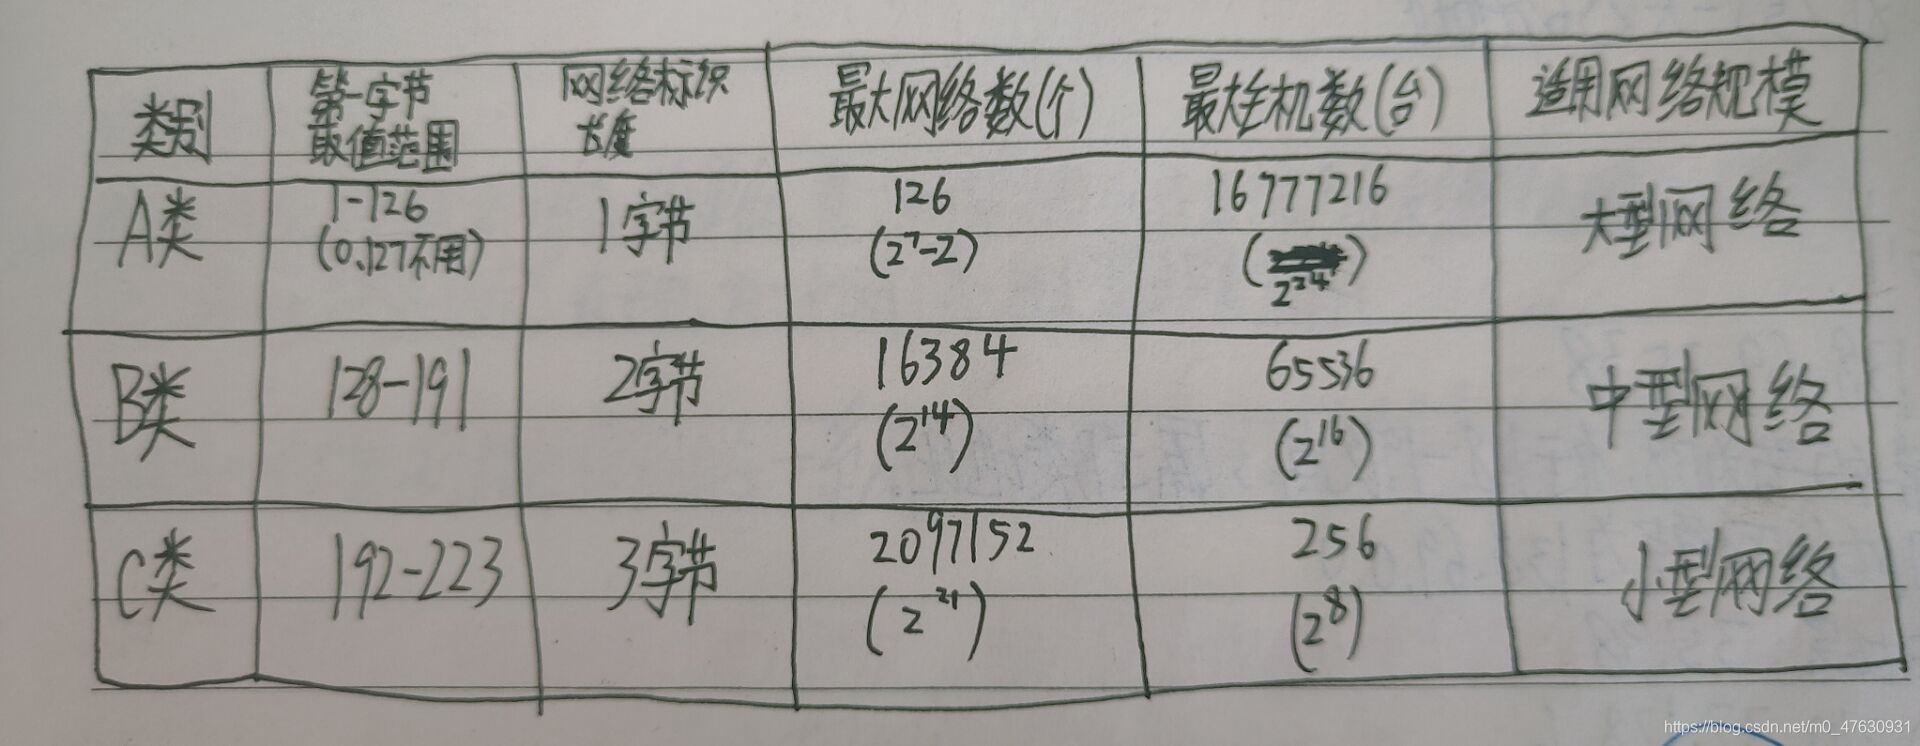 类别
第一字节
取值范围
网络标识
长度
最大网络数(个)
最大主机数(台)
适用网络规模
A类
1-126
(0.127不用)
1字节
126
(2⁷-2)
16777216
(2²⁴)
大型网络
B类
128-191
2字节
16384
(2¹⁴)
65536
(2¹⁶)
中型网络
C类
192-223
3字节
2097152
(2²¹)
256
(2⁸)
小型网络
https://blog.csdn.net/m0_47630931